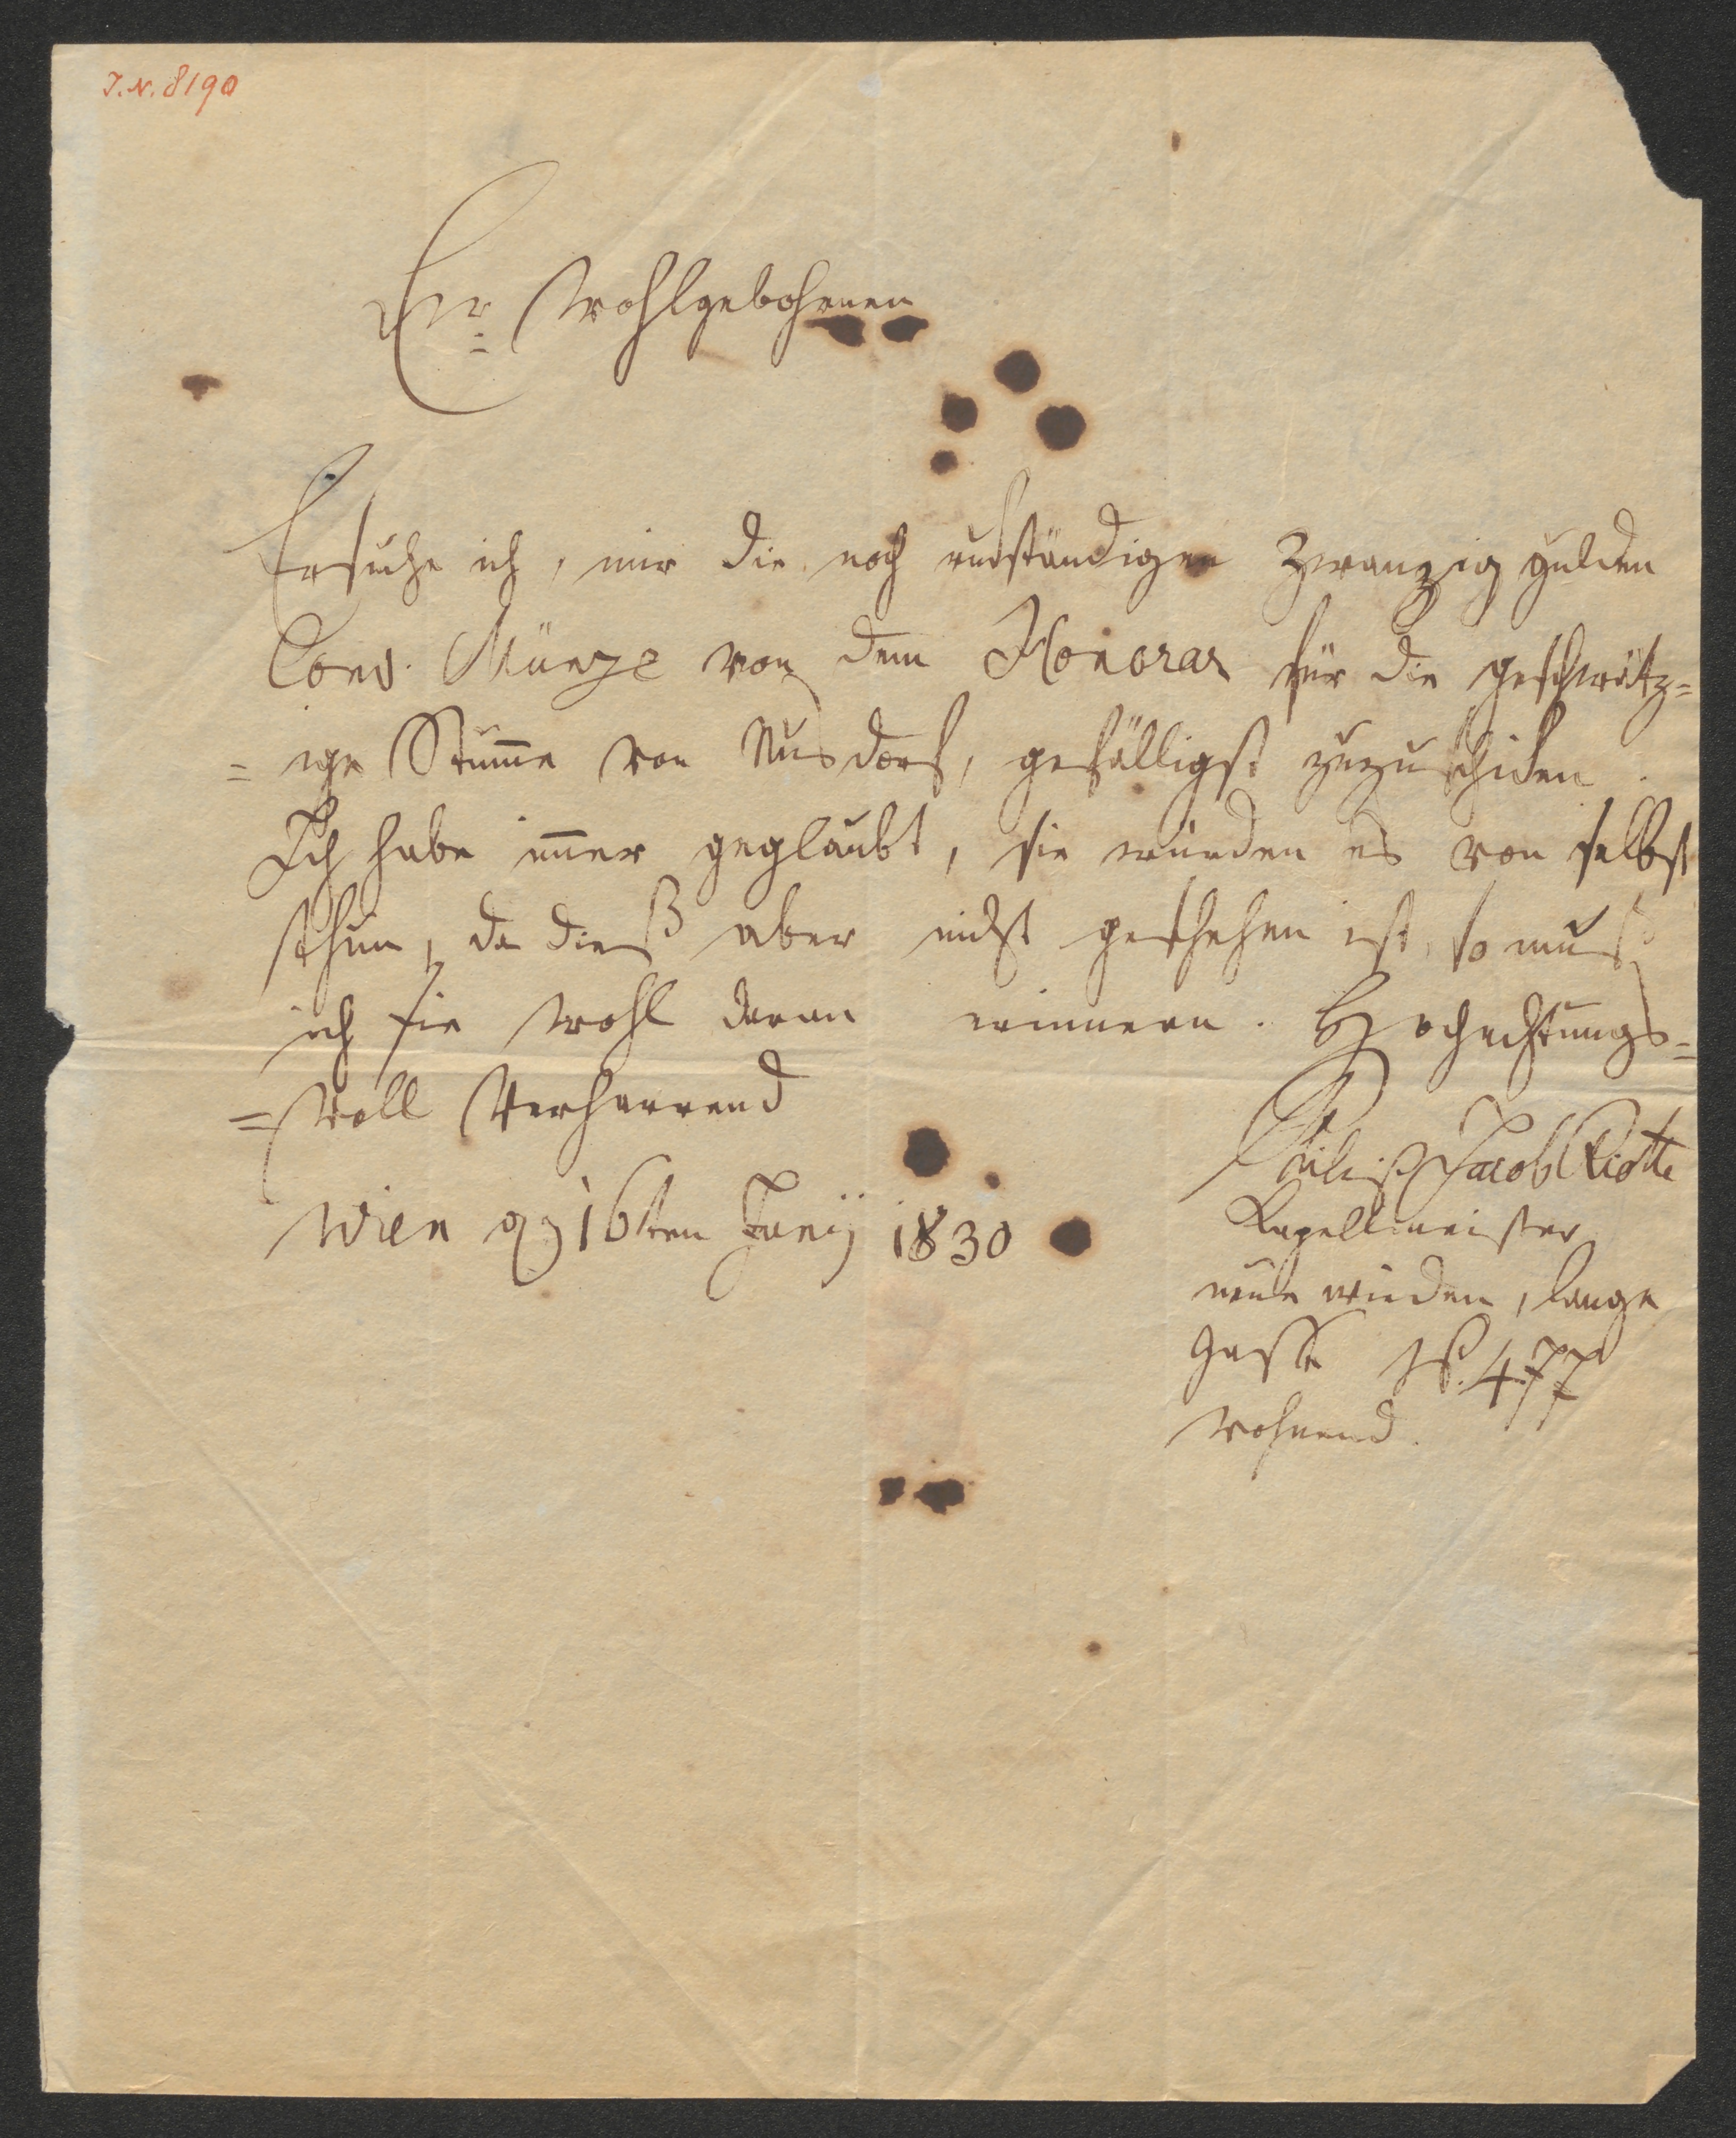 I.N. 8190
Eur. Wohlgebohrnen
Ersuche ich, mir die noch rukständigen Zwanzig gulden
Conv. Münze von dem Honorar für die geschwätz=
= ige Stum̄e von Nusdorf, gefälligst zuzuschiken.
Ich habe im̄er geglaubt, sie würden es von selbst
thun, da dieß aber nicht geschehen ist, so muß
ich sie wohl daran erinnern. Hochachtungs=
= voll Verharrend
Philipp Jacob Riotte
Wien 16ten Junij 1830
Kapellmeister
neue wieden, lange
gasse No. 477
wohnend.